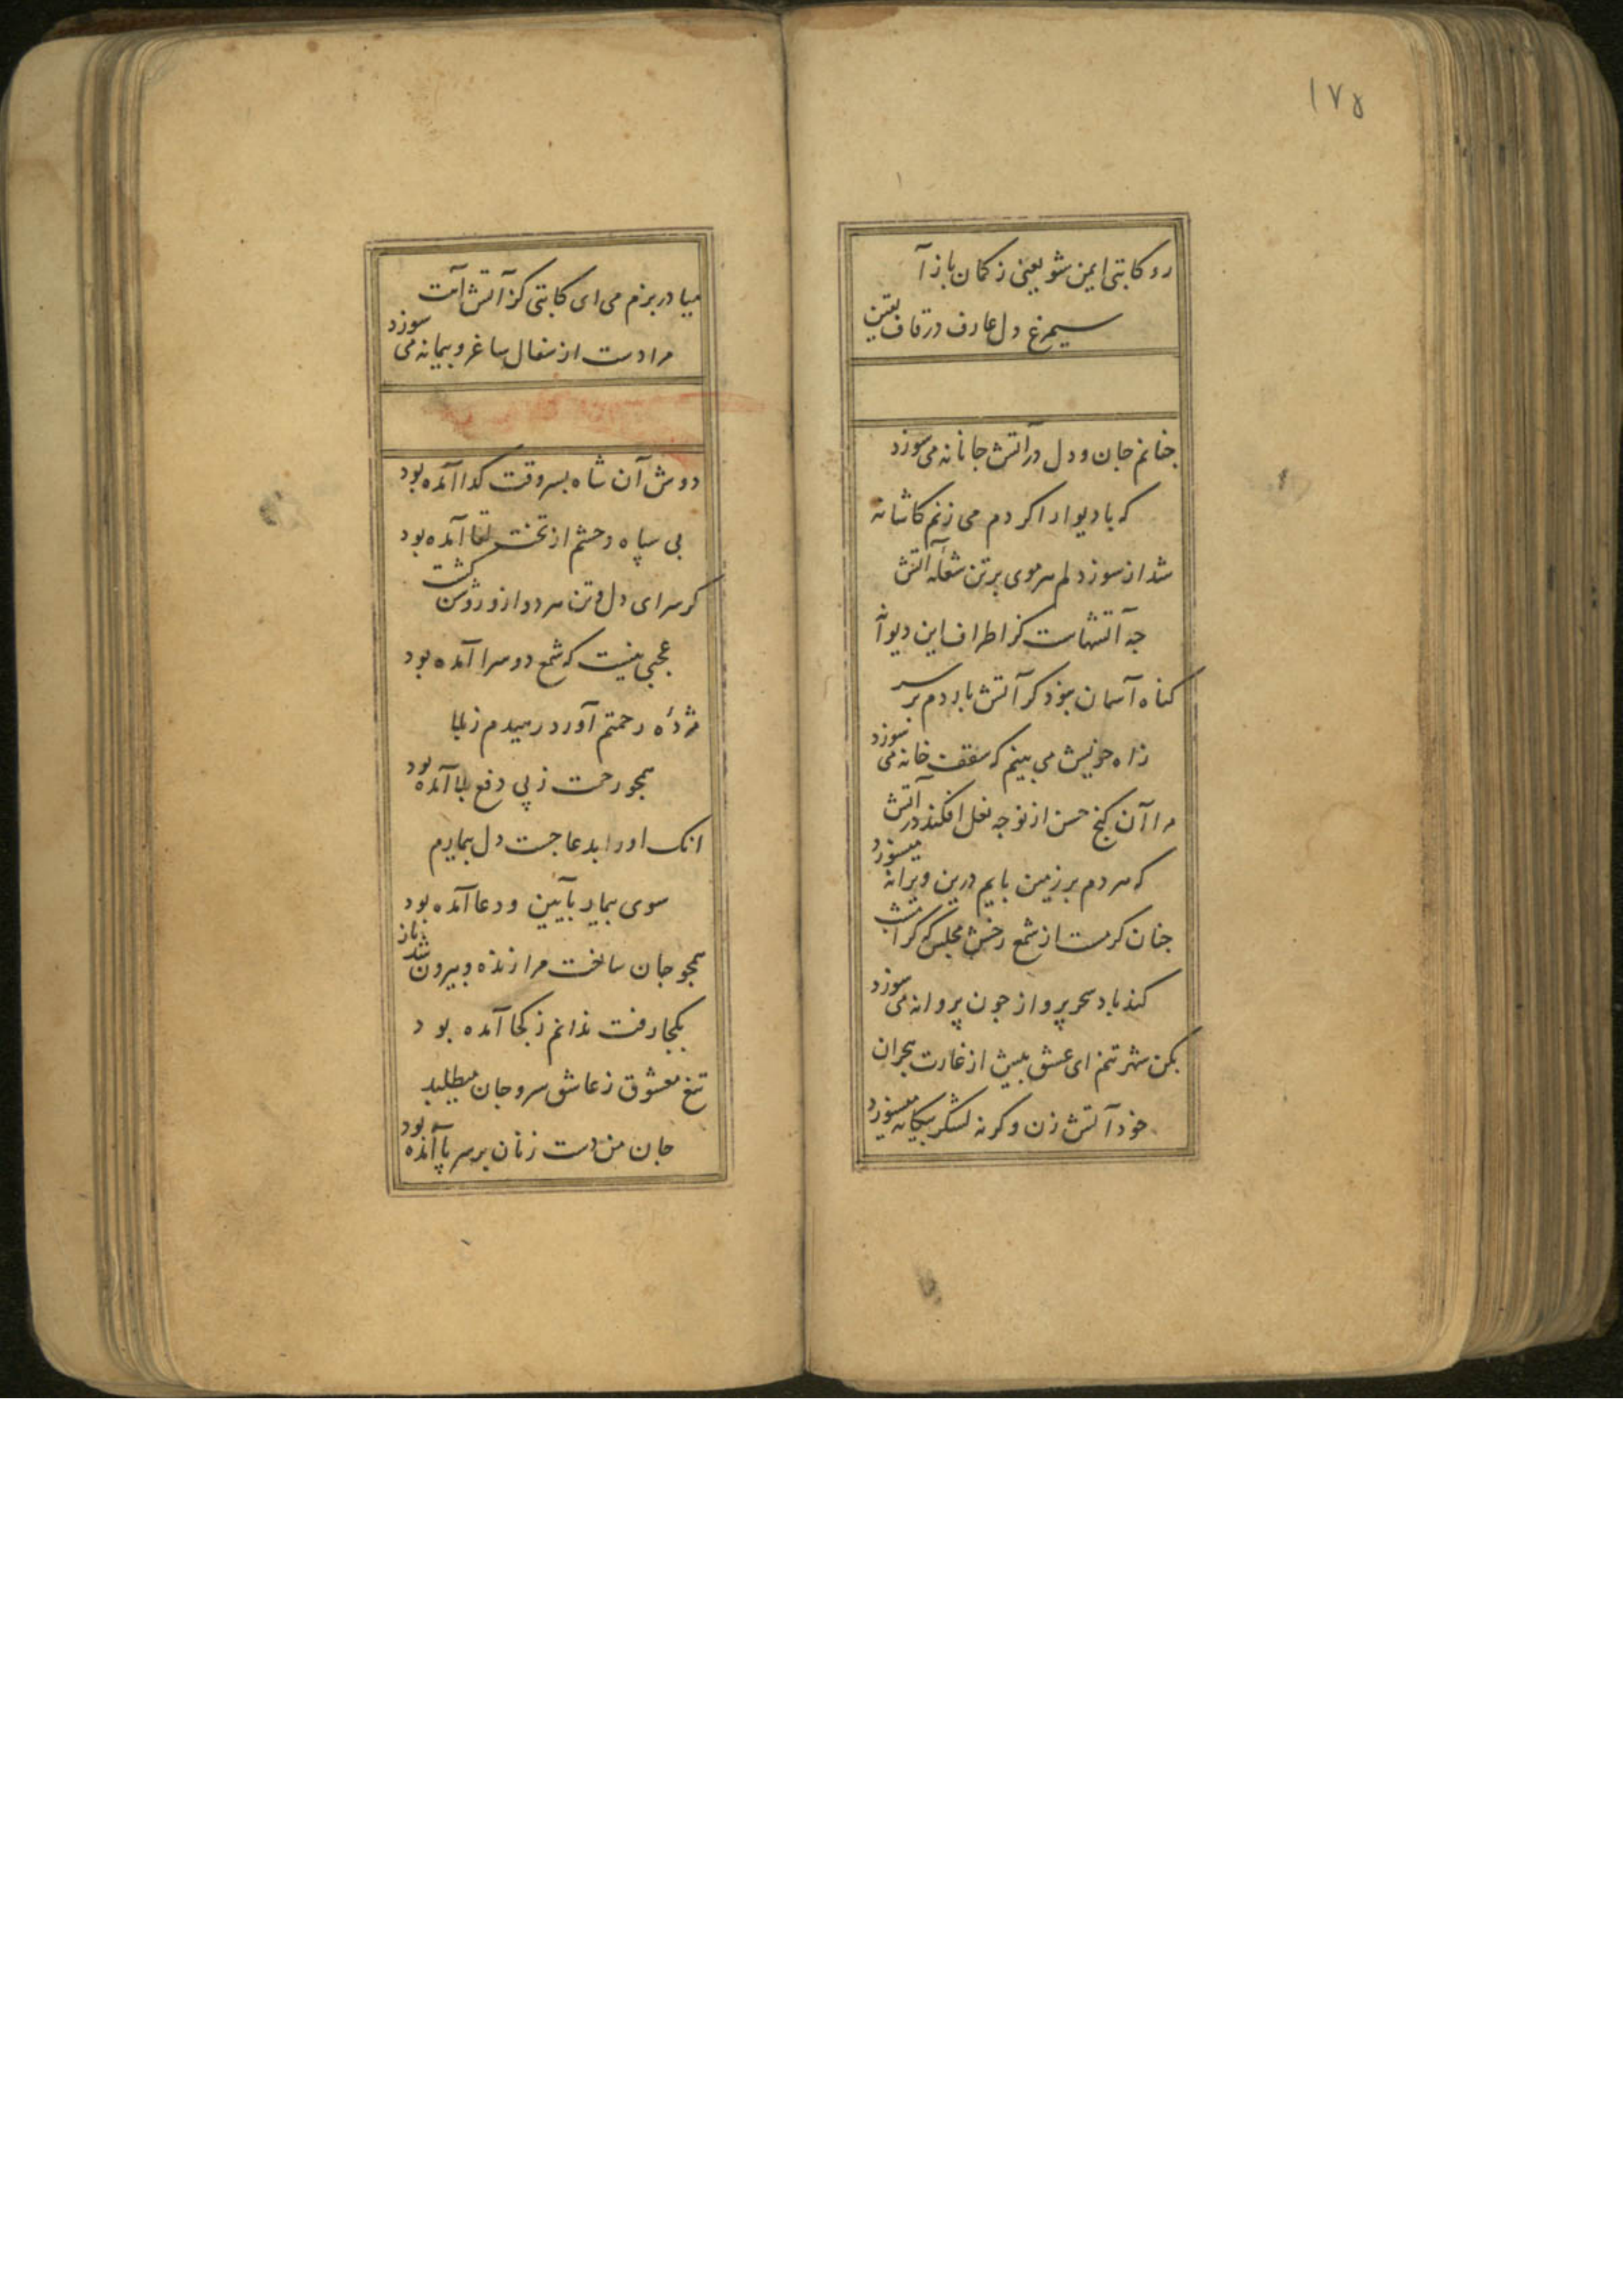 ۱۷۵
رو کاتبی ایمن شو یعنی ز کمان باز آ
سیمرغ دل عارف در قاف یقین
جنانم جان و دل در آتش جانانه می سوزد
که با دیوار اگر دم می زنم کاشانه
شد از سوز دلم هر موی بر تن شعله آتش
جه آتشهاست کز اطراف این دیوانه
کناه آسمان نبود کر آتش باردم بر سر
ز آه خویش می بینم که سقف خانه می سوزد
مرا آن کنج حسن از نو جه نعل افکند در آتش
که هر دم بر زمین پایم درین ویرانه میسوزد
جنان کرمست از شمع رخش مجلس که کر امشب
کند باد سحر پرواز جون پروانه می سوزد
بکن شهر تنم ای عشق پیش از غارت هجران
خود آتش زن وکرنه لشکر بیکانه میسوزد
میا در بزم می ای کاتبی کز آتش آهت
مرا دست از سفال ساغر و پیمانه می سوزد
دوش آن شاه بسر وقت کدا آمده بود
بی سپاه و حشم از تخت لقا آمده بود
کر سرای دل و تن هر دو ازو روشن کشت
عجبی نیست که شمع دو سرا آمده بود
مژده رحمتم آورد رهیدم ز بلا
همجو رحمت ز پی دفع بلا آمده بود
انک او را بدعا جست دل بیمارم
سوی بیمار بآیین و دعا آمده بود
همجو جان ساخت مرا زنده و بیرون شد باز
بکجا رفت ندانم ز کجا آمده بود
تیغ معشوق ز عاشق سر و جان میطلبد
جان من دست زنان بر سر پا آمده بود